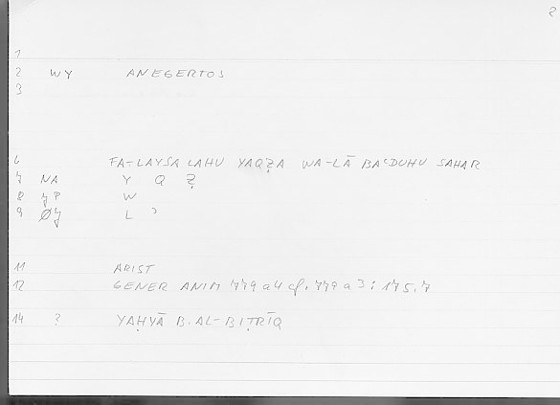 2
1
2 WY ANEGERTOS
3
6 FA-LAYSA LAHU YAQẒA WA-LĀ BAʿDUHU SAHAR
7 NA Y Q Ẓ
8 y? W
9 Øy L ʾ
11 ARIST
12 GENER ANIM 779 a 4 cf. 779 a 3 : 175.7
14 ? YAḤYĀ B. AL-BIṬRĪQ